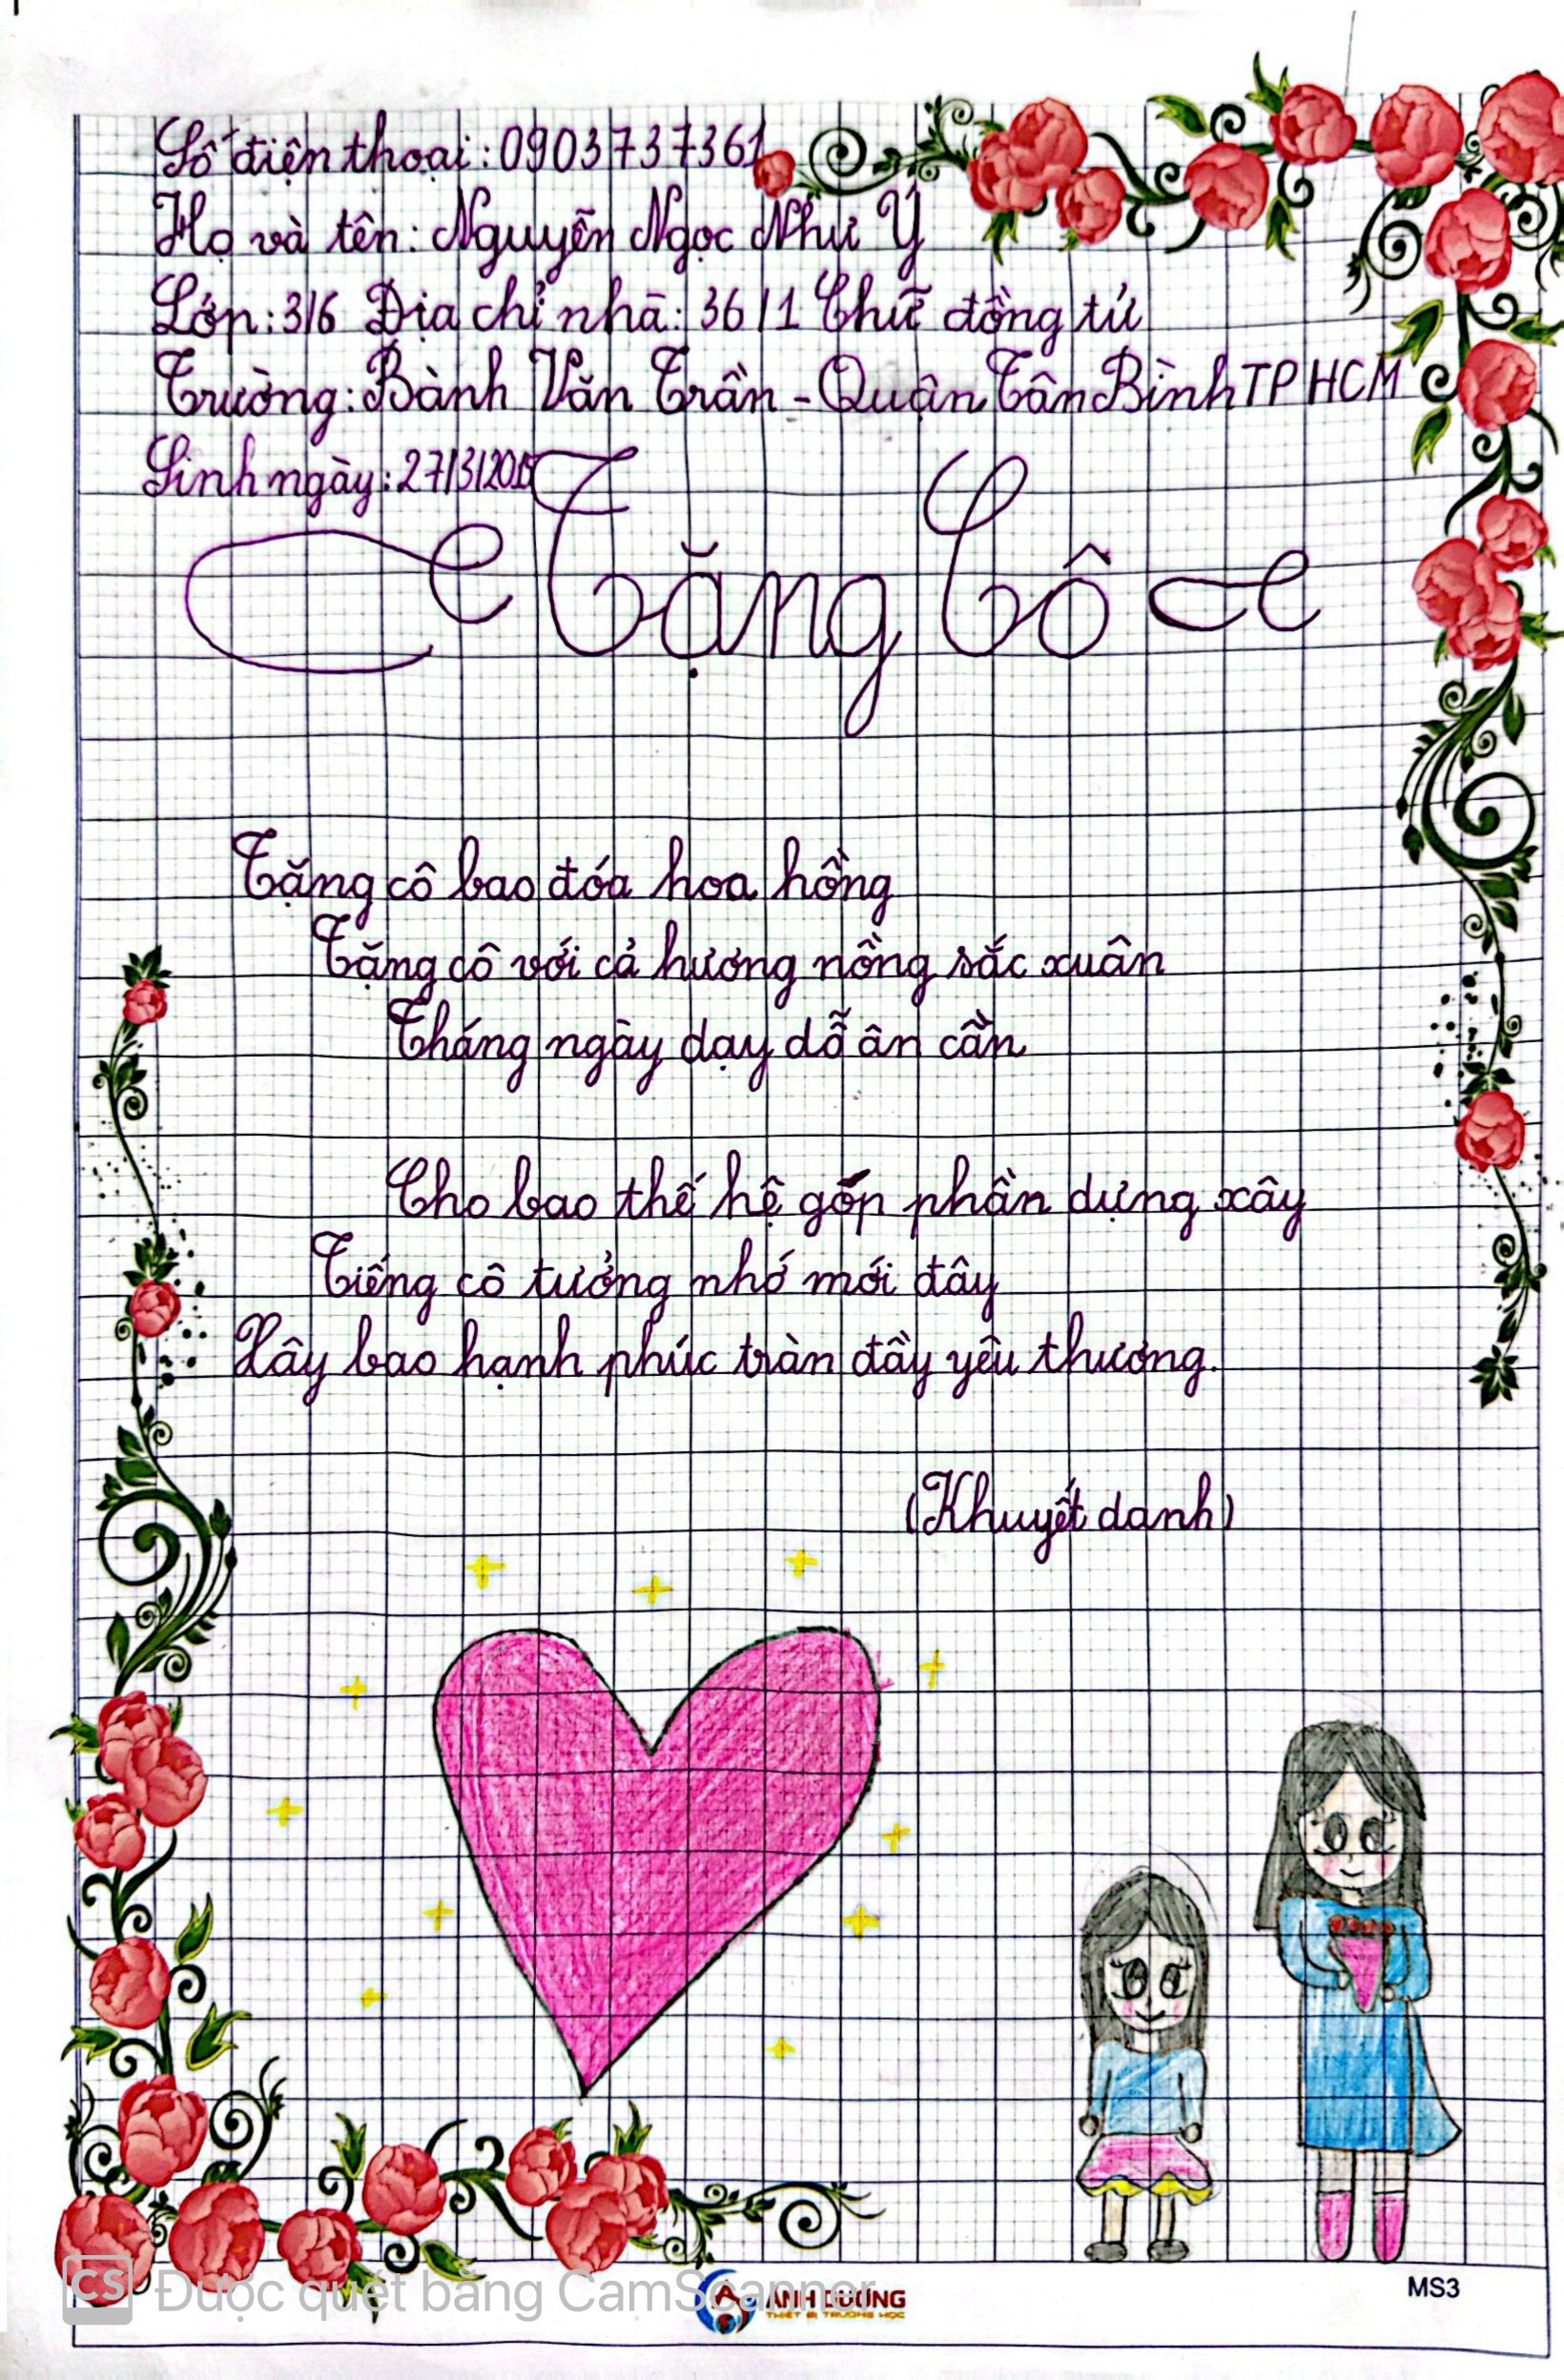 Số điện thoại: 0903737361
Họ và tên: Nguyễn Ngọc Như Ý
Lớp: 3/6 Địa chỉ nhà: 36/1 Chữ đồng tử
Trường: Bành Văn Trần - Quận Tân Bình TP HCM
Sinh ngày: 27/3/
Tặng Cô
Tặng cô bao đóa hoa hồng
Tặng cô với cả hương nồng sắc xuân
Tháng ngày dạy dỗ ân cần
Cho bao thế hệ góp phần dựng xây
Tiếng cô tưởng nhớ mới đây
Xây bao hạnh phúc tràn đầy yêu thương.
(Khuyết danh)
CS Được quét bằng CamScanner
ÁNH DƯƠNG
THIẾT BỊ TRƯỜNG HỌC
MS3